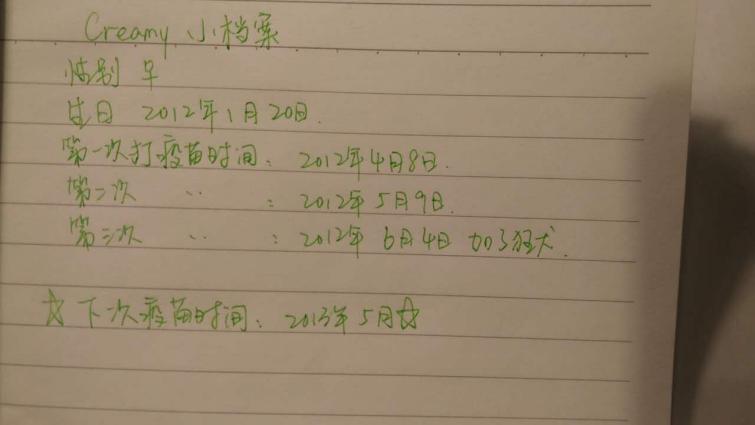 Creamy 小档案
性别 早
生日 2012年1月20日.
第一次打疫苗时间: 2012年4月8日.
第二次 〃 : 2012年5月9日.
第三次 〃 : 2012年6月4日 加了狂犬.
☆下次疫苗时间: 2013年5月☆